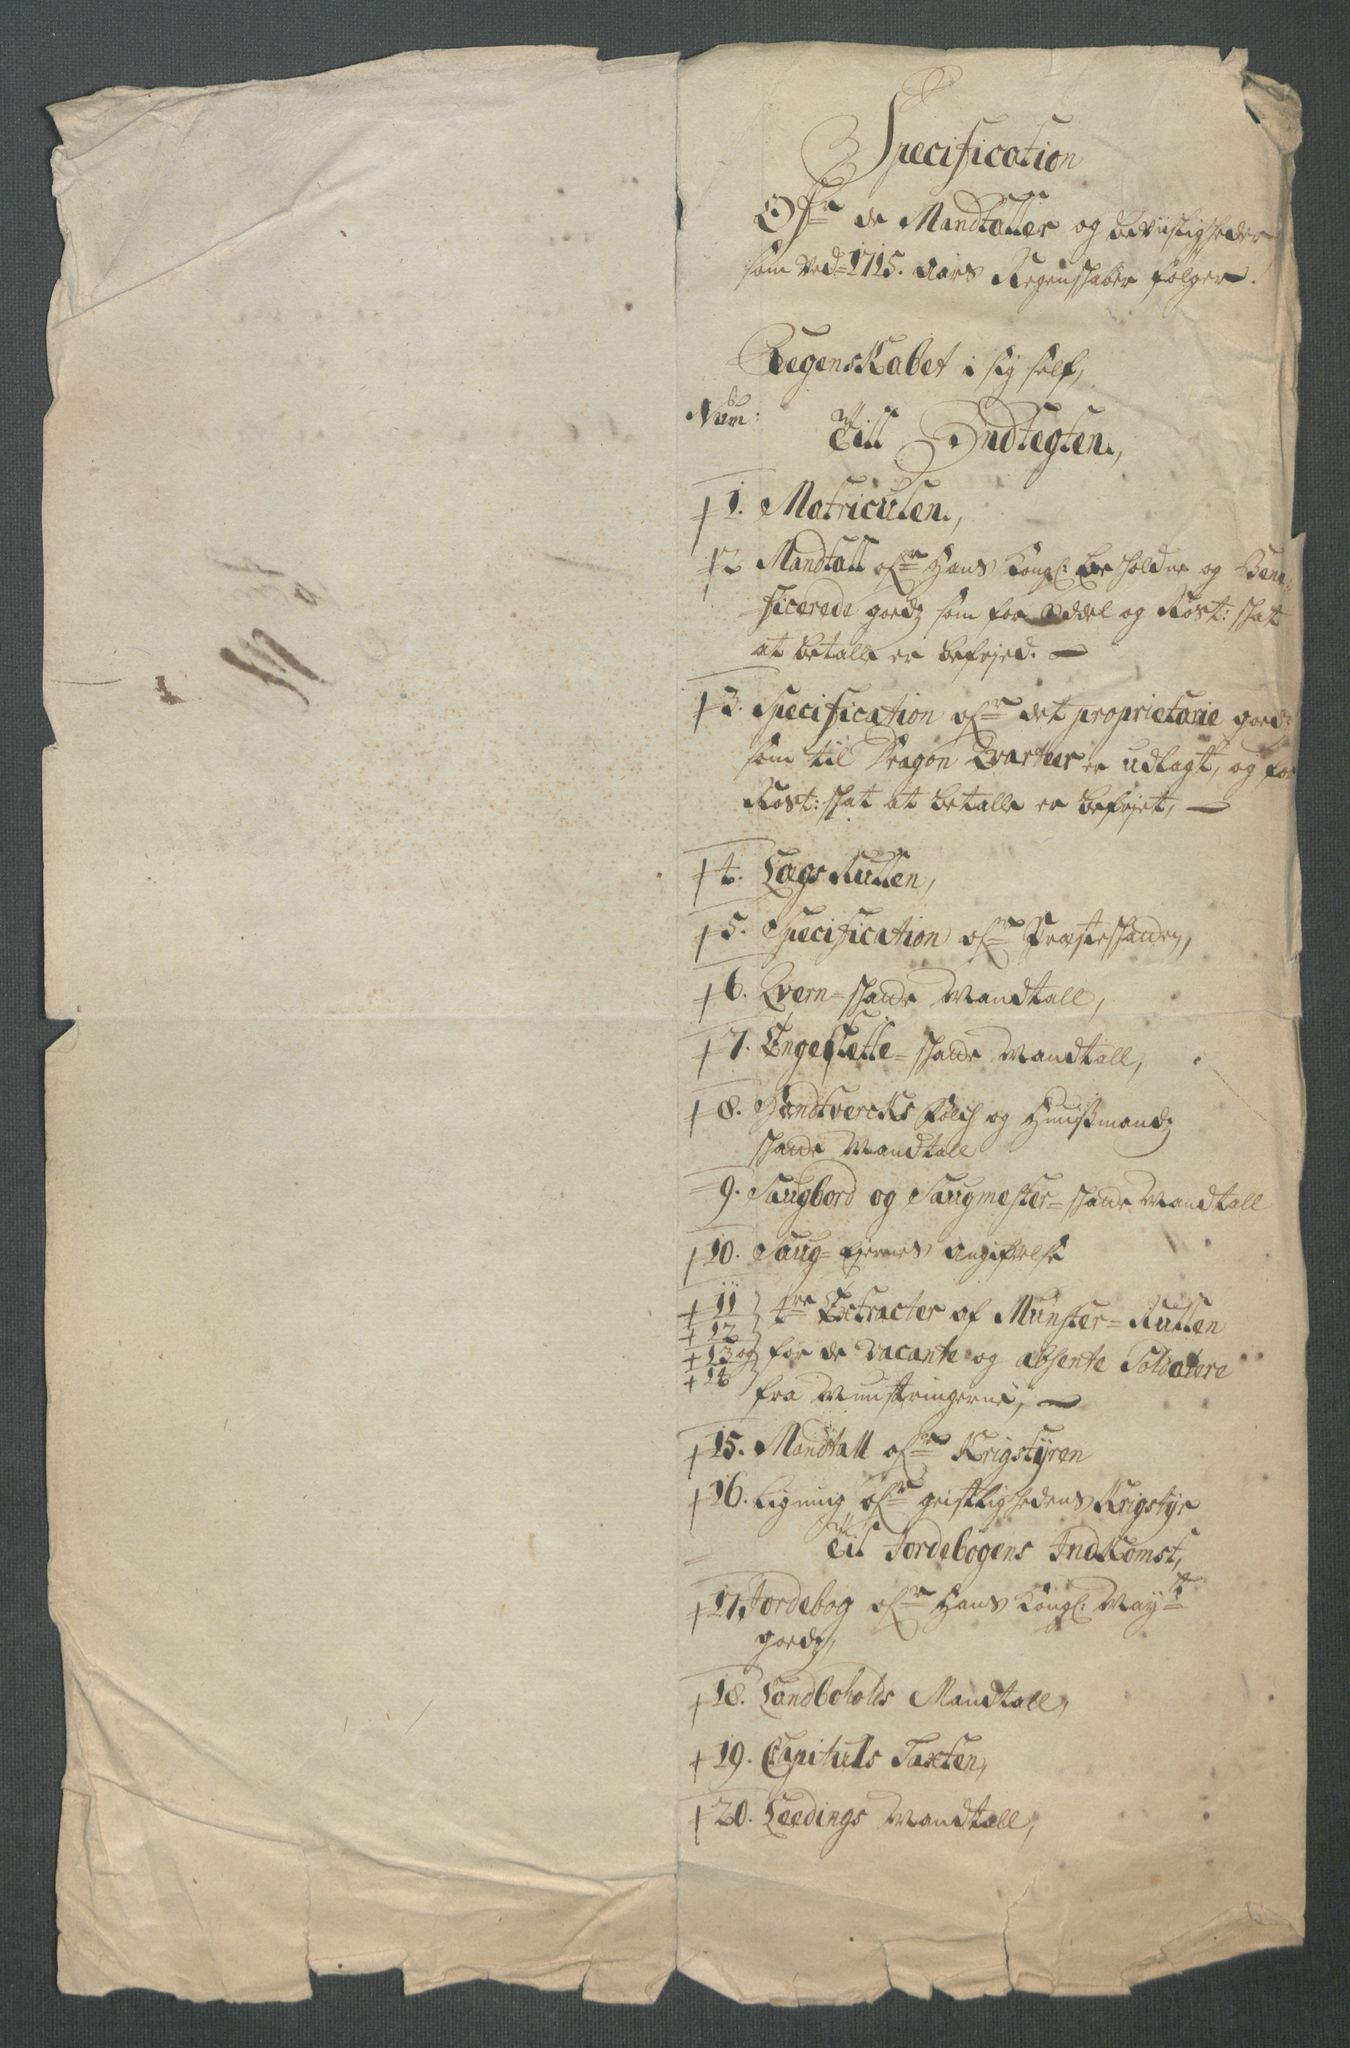 Specification
Ofr de Mandtaller og beviisligheder
som ved 1715. aars Regenskaber følger.
Regenskabet i sig self,
Num: Till Indtegten,
1. Matriculen,
2 Mandtall ofr Hans Kongl: beholdne og Bene-
ficerede goedz som for oddel og Rost: skat
at betalle er befrjed.
3. Specification ofr det proprietarie goedz
som til Dragon Qvarteer er udlagt, og for
Rost: skat at betalle er befrjet,
4. Lægs Rullen,
5. Specification ofr Præsteskatten,
6. Qvern-skatte Mandtall,
7. Engeslette-skatte Mandtall,
8. Handtvercks folch og Huusmandz
skatte Mandtall
9. Saugbord og Saugmester-skatte Mandtall
10. Saug-Eiernes Angifvelse
11 4re Extracter af Munster-Rullen
12
13 og for de vacante og absente Soldatere
14
fra Munstringerne,
15. Mandtall ofr Krigstyren
16. Ligning ofr geistlighedens Krigstyr
Til Jordebogens Indkomst,
17, Jordebog ofr Hans Kongl: Mayts
goedz,
18. Landboholds Mandtall,
19. Capituls Taxten,
20. Leedings Mandtall,